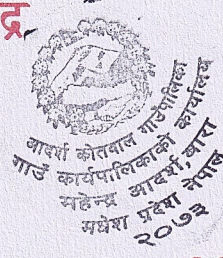 द्र
आदर्श कोतवाल गाउँपालिका
गाउँ कार्यपालिकाको कार्यालय
महेन्द्र आदर्श, बारा
मधेश प्रदेश नेपाल
२०७३